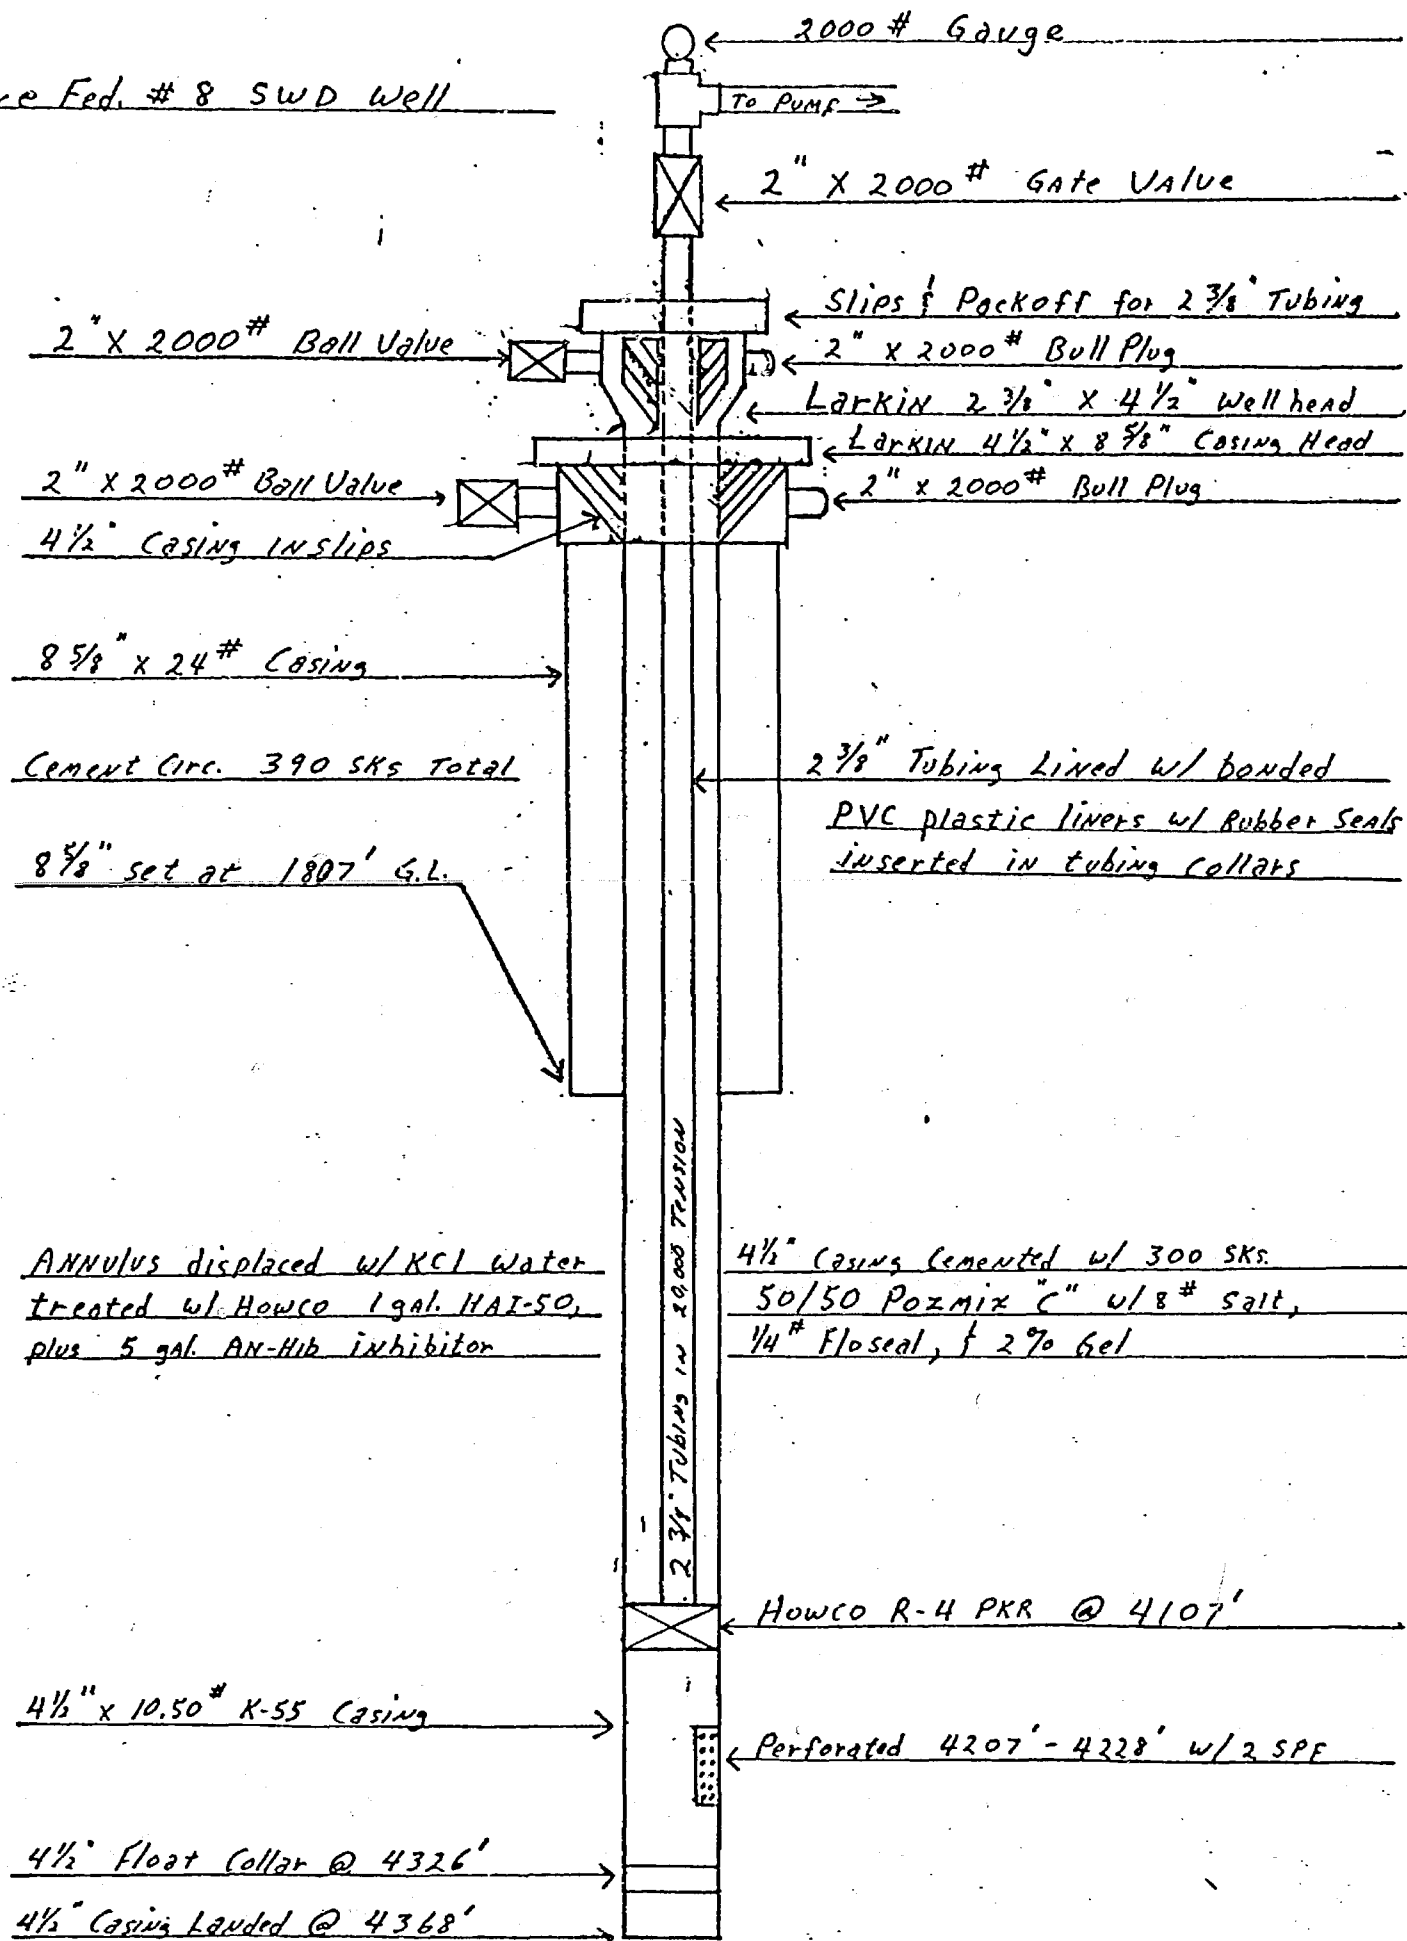 Fed. # 8 SWD Well
2000 # Gauge
To Pump →
2" X 2000 # Gate Valve
Slips & Packoff for 2 3/8" Tubing
2" X 2000 # Ball Valve
2" X 2000 # Bull Plug
Larkin 2 3/8" X 4 1/2" Wellhead
Larkin 4 1/2" X 8 5/8" Casing Head
2" X 2000 # Ball Valve
2" X 2000 # Bull Plug
4 1/2" Casing In Slips
8 5/8" X 24 # Casing
Cement Circ. 390 SKs Total
2 3/8" Tubing Lined w/ bonded
PVC plastic liners w/ Rubber Seals
inserted in tubing collars
8 5/8" set at 1807' G.L.
2 3/8" Tubing in 20,000 Tension
Annulus displaced w/ KCl Water
treated w/ Howco 1 gal. HAI-50,
plus 5 gal. AN-Hib inhibitor
4 1/2" Casing Cemented w/ 300 SKs.
50/50 Pozmix "C" w/ 8 # Salt,
1/4 # Floseal, & 2% Gel
Howco R-4 PKR @ 4107'
4 1/2" X 10.50 # K-55 Casing
Perforated 4207' - 4228' w/ 2 SPF
4 1/2" Float Collar @ 4326'
4 1/2" Casing Landed @ 4368'